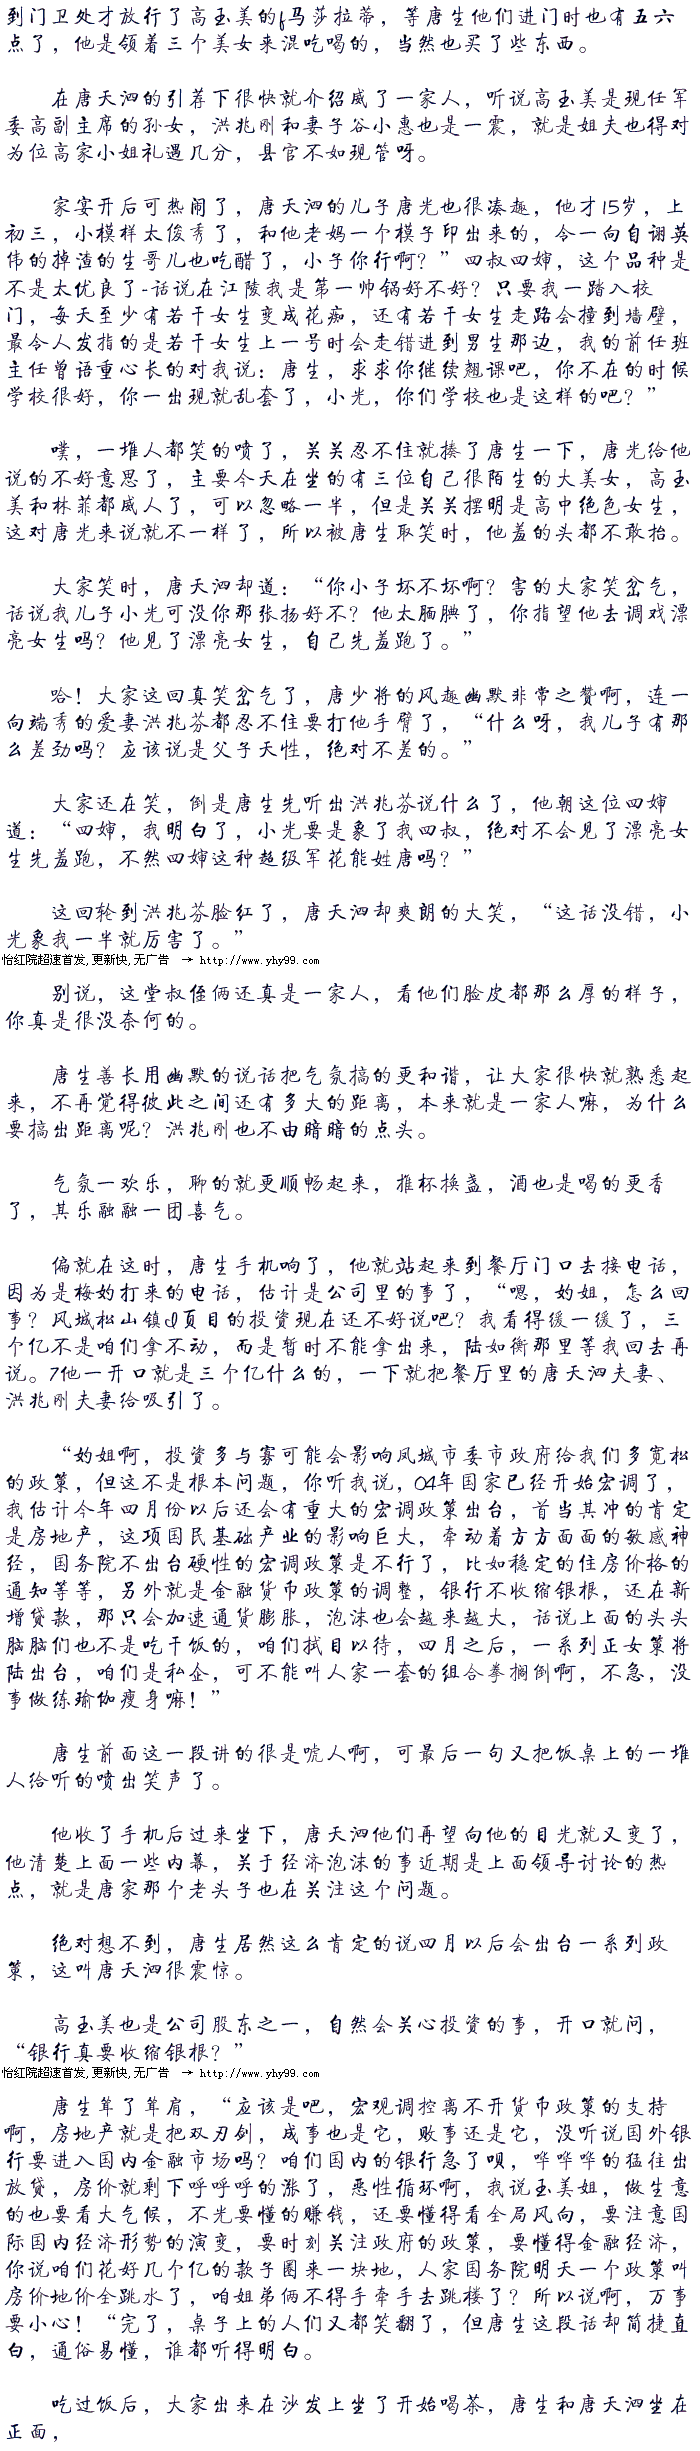 到门卫处才放行了高玉美的f马莎拉蒂，等唐生他们进门时也有五六
点了，他是领着三个美女来混吃喝的，当然也买了些东西。
在唐天泗的引荐下很快就介绍威了一家人，听说高玉美是现任军
委高副主席的孙女，洪兆刚和妻子谷小惠也是一震，就是姐夫也得对
为位高家小姐礼遇几分，县官不如现管呀。
家宴开后可热闹了，唐天泗的儿子唐光也很凑趣，他才15岁，上
初三，小模样太俊秀了，和他老妈一个模子印出来的，令一向自诩英
伟的掉渣的生哥儿也吃醋了，小子你行啊？”四叔四婶，这个品种是
不是太优良了-话说在江陵我是第一帅锅好不好？只要我一踏入校
门，每天至少有若干女生变成花痴，还有若干女生走路会撞到墙壁，
最令人发指的是若干女生上一号时会走错进到男生那边，我的前任班
主任曾语重心长的对我说：唐生，求求你继续翘课吧，你不在的时候
学校很好，你一出现就乱套了，小光，你们学校也是这样的吧？”
噗，一堆人都笑的喷了，关关忍不住就揍了唐生一下，唐光给他
说的不好意思了，主要今天在坐的有三位自己很陌生的大美女，高玉
美和林菲都威人了，可以忽略一半，但是关关摆明是高中绝色女生，
这对唐光来说就不一样了，所以被唐生取笑时，他羞的头都不敢抬。
大家笑时，唐天泗却道：“你小子坏不坏啊？害的大家笑岔气，
话说我儿子小光可没你那张扬好不？他太腼腆了，你指望他去调戏漂
亮女生吗？他见了漂亮女生，自己先羞跑了。”
哈！大家这回真笑岔气了，唐少将的风趣幽默非常之赞啊，连一
向端秀的爱妻洪兆芬都忍不住要打他手臂了，“什么呀，我儿子有那
么差劲吗？应该说是父子天性，绝对不差的。”
大家还在笑，倒是唐生先听出洪兆芬说什么了，他朝这位四婶
道：“四婶，我明白了，小光要是象了我四叔，绝对不会见了漂亮女
生先羞跑，不然四婶这种超级军花能姓唐吗？”
这回轮到洪兆芬脸红了，唐天泗却爽朗的大笑，“这话没错，小
光象我一半就厉害了。”
怡红院超速首发,更新快,无广告 →http://www.yhy99.com
别说，这堂叔侄俩还真是一家人，看他们脸皮都那么厚的样子，
你真是很没奈何的。
唐生善长用幽默的说话把气氛搞的更和谐，让大家很快就熟悉起
来，不再觉得彼此之间还有多大的距离，本来就是一家人嘛，为什么
要搞出距离呢？洪兆刚也不由暗暗的点头。
气氛一欢乐，聊的就更顺畅起来，推杯换盏，酒也是喝的更香
了，其乐融融一团喜气。
偏就在这时，唐生手机响了，他就站起来到餐厅门口去接电话，
因为是梅妁打来的电话，估计是公司里的事了，“嗯，妁姐，怎么回
事？风城松山镇d页目的投资现在还不好说吧？我看得缓一缓了，三
个亿不是咱们拿不动，而是暂时不能拿出来，陆如衡那里等我回去再
说。7他一开口就是三个亿什么的，一下就把餐厅里的唐天泗夫妻、
洪兆刚夫妻给吸引了。
“妁姐啊，投资多与寡可能会影响凤城市委市政府给我们多宽松
的政策，但这不是根本问题，你听我说，04年国家已经开始宏调了，
我估计今年四月份以后还会有重大的宏调政策出台，首当其冲的肯定
是房地产，这项国民基础产业的影响巨大，牵动着方方面面的敏感神
经，国务院不出台硬性的宏调政策是不行了，比如稳定的住房价格的
通知等等，另外就是金融货币政策的调整，银行不收缩银根，还在新
增贷款，那只会加速通货膨胀，泡沫也会越来越大，话说上面的头头
脑脑们也不是吃干饭的，咱们拭目以待，四月之后，一系列正女策将
陆出台，咱们是私企，可不能叫人家一套的组合拳搁倒啊，不急，没
事做练瑜伽瘦身嘛！”
唐生前面这一段讲的很是唬人啊，可最后一句又把饭桌上的一堆
人给听的喷出笑声了。
他收了手机后过来坐下，唐天泗他们再望向他的目光就又变了，
他清楚上面一些内幕，关于经济泡沫的事近期是上面领导讨论的热
点，就是唐家那个老头子也在关注这个问题。
绝对想不到，唐生居然这么肯定的说四月以后会出台一系列政
策，这叫唐天泗很震惊。
高玉美也是公司股东之一，自然会关心投资的事，开口就问，
“银行真要收缩银根？”
怡红院超速首发,更新快,无广告 →http://www.yhy99.com
唐生耸了耸肩，“应该是吧，宏观调控离不开货币政策的支持
啊，房地产就是把双刃剑，成事也是它，败事还是它，没听说国外银
行要进入国内金融市场吗？咱们国内的银行急了呗，哗哗哗的猛往出
放贷，房价就剩下呼呼呼的涨了，恶性循环啊，我说玉美姐，做生意
的也要看大气候，不光要懂的赚钱，还要懂得看全局风向，要注意国
际国内经济形势的演变，要时刻关注政府的政策，要懂得金融经济，
你说咱们花好几个亿的款子圈来一块地，人家国务院明天一个政策叫
房价地价全跳水了，咱姐弟俩不得手牵手去跳楼了？所以说啊，万事
要小心！“完了，桌子上的人们又都笑翻了，但唐生这段话却简捷直
白，通俗易懂，谁都听得明白。
吃过饭后，大家出来在沙发上坐了开始喝茶，唐生和唐天泗坐在
正面，